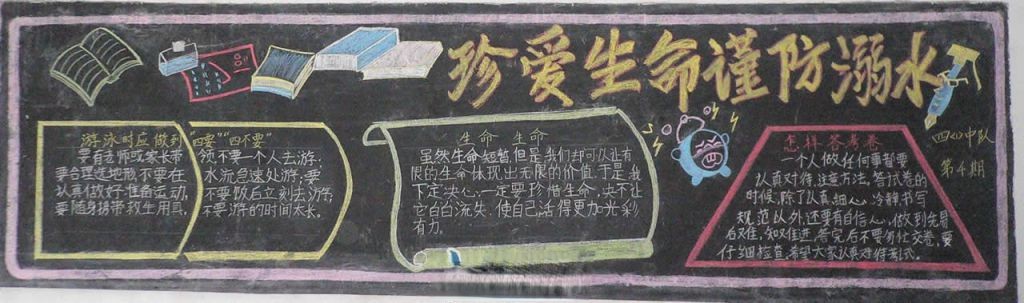 珍爱生命谨防溺水
四(4)中队
第4期
游泳时应做到"四要""四不要"
要有老师或家长带领,
要合理选地形,
认真做好准备运动,
要随身携带救生用具,
不要一个人去游;
不要在水流急速处游;
不要饭后立刻去游;
不要游的时间太长。
生命 生命
虽然生命短暂,但是,我们却可以让有
限的生命体现出无限的价值。于是,我
下定决心,一定要珍惜生命,决不让
它白白流失,使自己活得更加光彩
有力。
怎样答考卷
一个人做任何事都要
认真对待,注意方法。答试卷的
时候,除了认真、细心、冷静、书写
规范以外,还要有自信心,做到先易
后难,知难进,答完后不要匆忙交卷,要
仔细检查,希望大家认真对待考试。